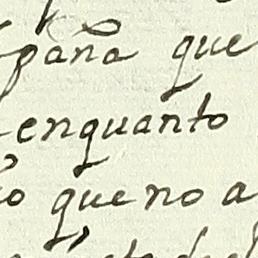 paña que
enquanto
o que no a